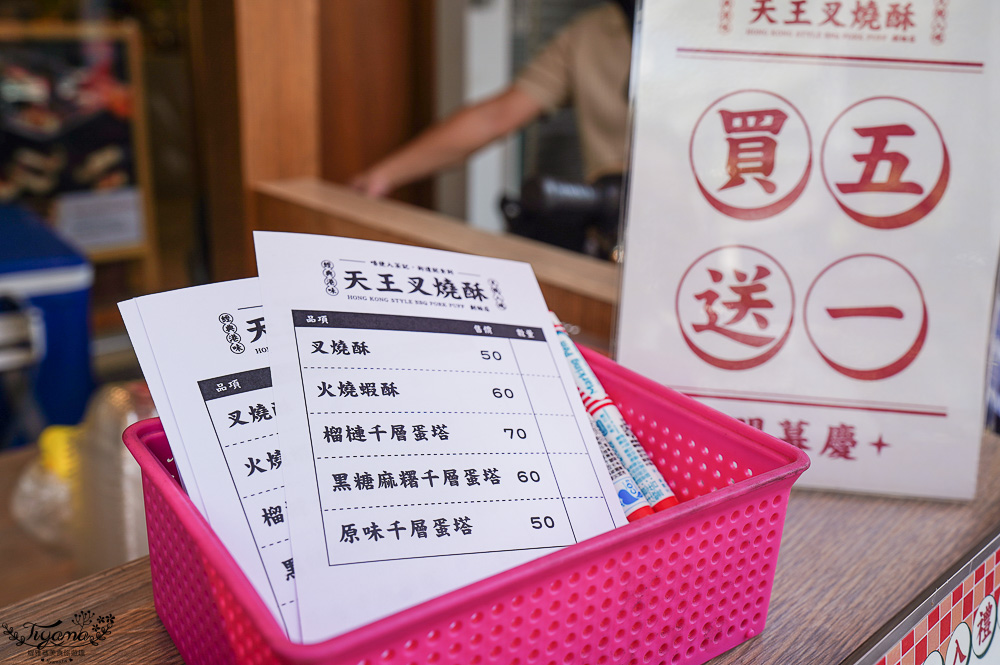 天王叉燒酥
HONG KONG STYLE BBQ PORK PUFF
買五
送一
慶
經典港味
天王叉燒酥
HONG KONG STYLE BBQ PORK PUFF
品項 售價 數量
叉燒酥 50
火燒蝦酥 60
榴槤千層蛋塔 70
黑糖麻糬千層蛋塔 60
原味千層蛋塔 50
經典港味
天
HONG
品項
叉燒
火燒
榴
黑
Marking Pen
入
禮
Tiyama